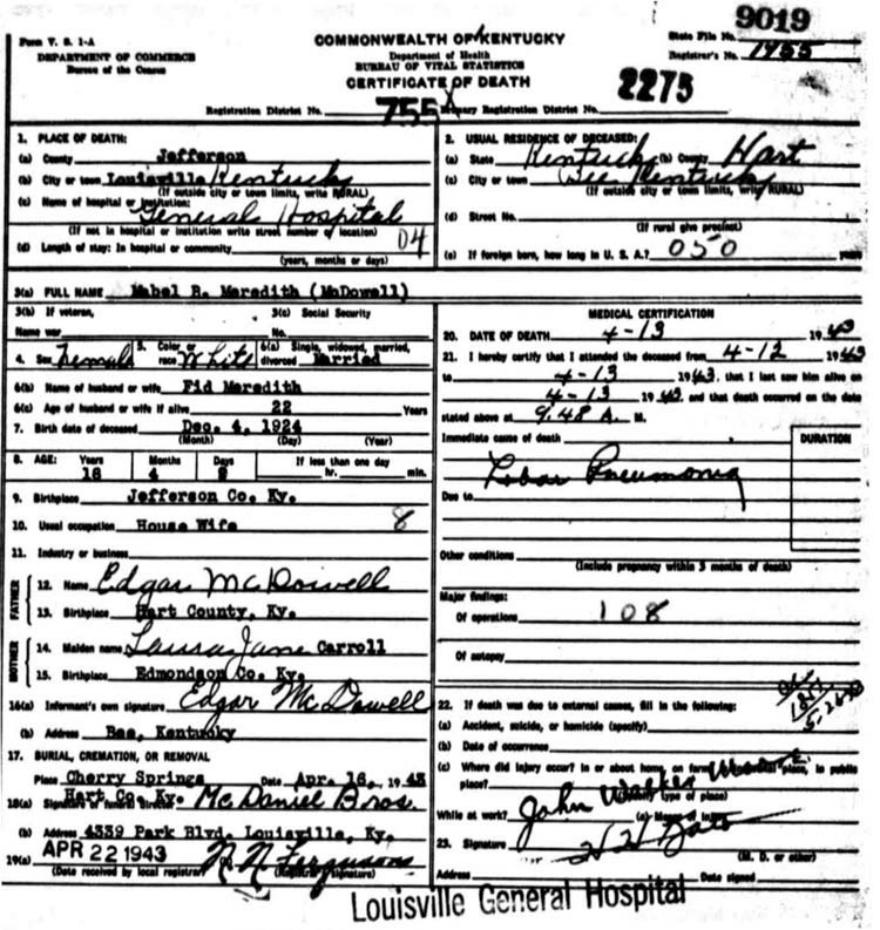 9019
Form V. S. 1-A
DEPARTMENT OF COMMERCE
Bureau of the Census
COMMONWEALTH OF KENTUCKY
Department of Health
BUREAU OF VITAL STATISTICS
CERTIFICATE OF DEATH
State File No.
Registrar's No. 1455
Registration District No. 755 Primary Registration District No. 2275
1. PLACE OF DEATH:
(a) County Jefferson
(b) City or town Louisville Kentucky
(If outside city or town limits, write RURAL)
(c) Name of hospital or institution:
General Hospital
(If not in hospital or institution write street number or location)
(d) Length of stay: In hospital or community 04
(years, months or days)
2. USUAL RESIDENCE OF DECEASED:
(a) State Kentucky (b) County Hart
(c) City or town Bee Kentucky
(If outside city or town limits, write RURAL)
(d) Street No.
(If rural give precinct)
(e) If foreign born, how long in U. S. A.? 050 years
3(a) FULL NAME Mabel B. Meredith (McDowell)
3(b) If veteran,
Name war
3(c) Social Security
No.
4. Sex Female 5. Color or race White 6(a) Single, widowed, married, divorced Married
6(b) Name of husband or wife Fid Meredith
6(c) Age of husband or wife if alive 22 Years
7. Birth date of deceased Dec. 4, 1924
(Month) (Day) (Year)
8. AGE: Years Months Days If less than one day
18 4 9 hr. min.
9. Birthplace Jefferson Co. Ky.
10. Usual occupation House Wife 8
11. Industry or business
FATHER
12. Name Edgar McDowell
13. Birthplace Hart County, Ky.
MOTHER
14. Maiden name Laura Jane Carroll
15. Birthplace Edmondson Co. Ky.
16(a) Informant's own signature Edgar McDowell
(b) Address Bee, Kentucky
17. BURIAL, CREMATION, OR REMOVAL
Place Cherry Springs Date Apr. 16, 1943
Hart Co. Ky.
18(a) Signature of funeral director McDaniel Bros.
(b) Address 4339 Park Blvd. Louisville, Ky.
19(a) APR 22 1943 N. N. Ferguson
(Date received by local registrar) (Registrar's signature)
MEDICAL CERTIFICATION
20. DATE OF DEATH 4-13 1943
21. I hereby certify that I attended the deceased from 4-12 1943
to 4-13 1943, that I last saw him alive on
4-13 1943, and that death occurred on the date
stated above at 9:48 A. M.
Immediate cause of death
DURATION
Lobar Pneumonia
Due to
Other conditions
(Include pregnancy within 3 months of death)
Major findings:
Of operations 108
Of autopsy
22. If death was due to external causes, fill in the following:
(a) Accident, suicide, or homicide (specify)
(b) Date of occurrence
(c) Where did injury occur? In or about home, on farm, place, in public
place?
(Specify type of place)
While at work? (e) Means of injury
John Walker Moore
23. Signature
(M. D. or other)
Address Date signed
Louisville General Hospital